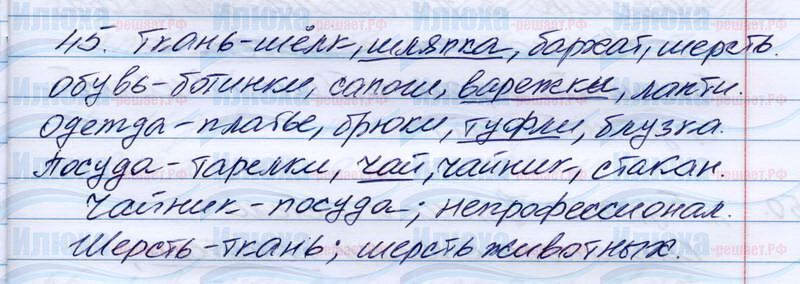 45. Ткань-шёлк, шляпка, бархат, шерсть.
Обувь-ботинки, сапоги, варежки, лапти.
Одежда-платье, брюки, туфли, блузка.
Посуда-тарелки, чай, чайник, стакан.
Чайник-посуда; непрофессионал.
Шерсть-ткань; шерсть животных.